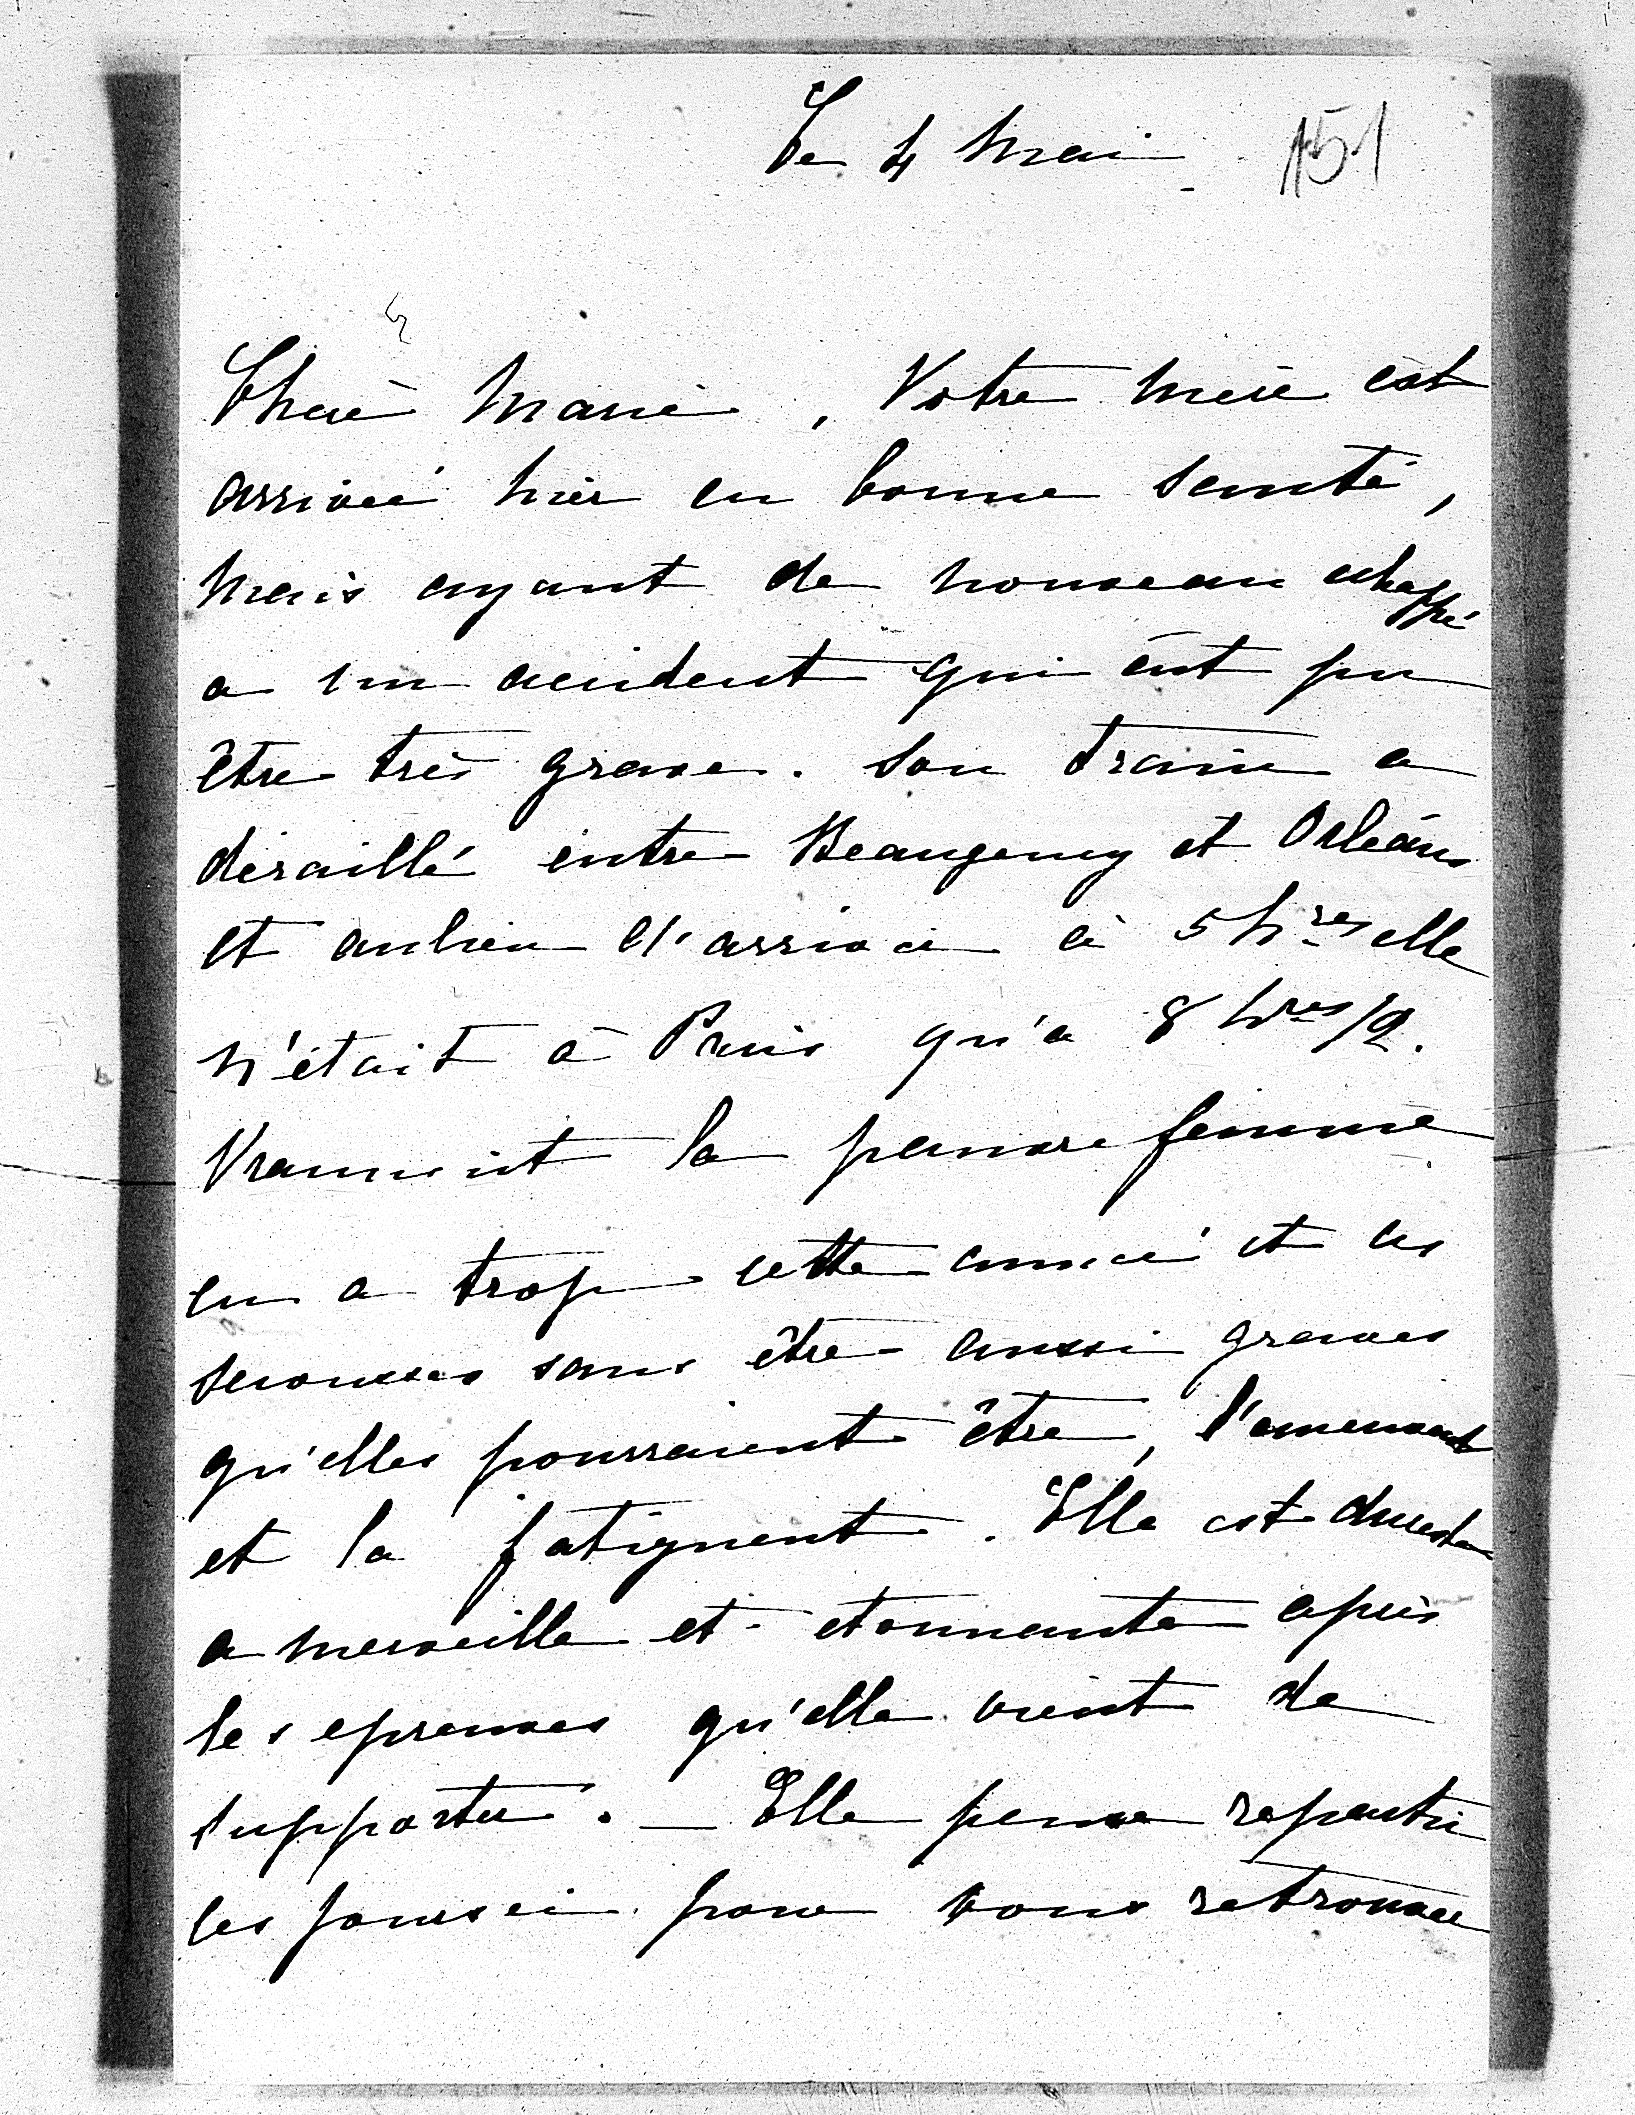 Le 4 Mai 151
Chère Marie, Votre mère est
arrivée hier en bonne santé,
mais ayant de nouveau echappé
a un accident qui eut pu
être très grave. Son train a
déraillé entre Beaugency et Orléans
et au lieu d'arriver à 5 hres elle
n'était à Paris qu'a 8 hres 1/2.
Vraiment la pauvre femme
en a trop cette année et ces
secousses sans être aussi graves
qu'elles pourraient être, l'emeuvent
et la fatiguent. Elle est
a merveille et etonnante après
les epreuves qu'elle vient de
supporter. — Elle pense repartir
ces jours ci pour vous retrouver